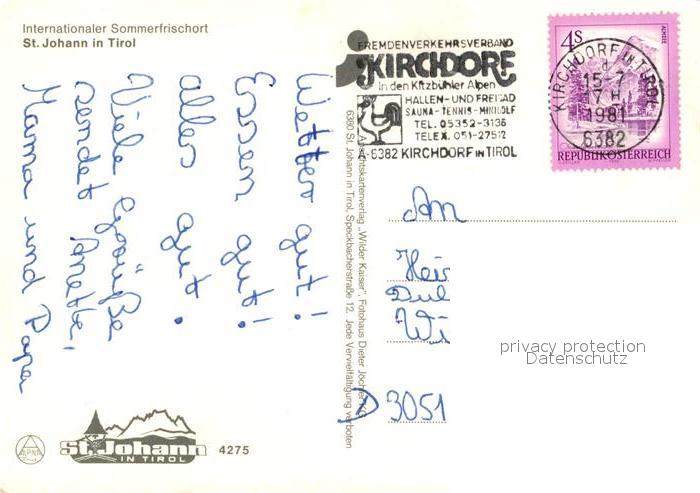 Internationaler Sommerfrischort
St. Johann in Tirol
Wetter gut!
Essen gut!
alles gut.
Viele Grüße
sendet Anette,
Mama und Papa
St. Johann
IN TIROL
4275
Ansichtskartenverlag „Wilder Kaiser", Fotohaus Dieter Jöchler KG
6380 St. Johann in Tirol, Speckbacherstraße 12. Jede Vervielfältigung verboten
FREMDENVERKEHRSVERBAND
KIRCHDORF
in den Kitzbühler Alpen
HALLEN- UND FREIBAD
SAUNA-TENNIS-MINIGOLF
TEL. 05352-3136
TELEX. 051-27512
A-6382 KIRCHDORF IN TIROL
4S
ALMSEE
REPUBLIK ÖSTERREICH
KIRCHDORF IN TIROL
d
15.-7.
17 H
1981
6382
An
D 3051
privacy protection
Datenschutz